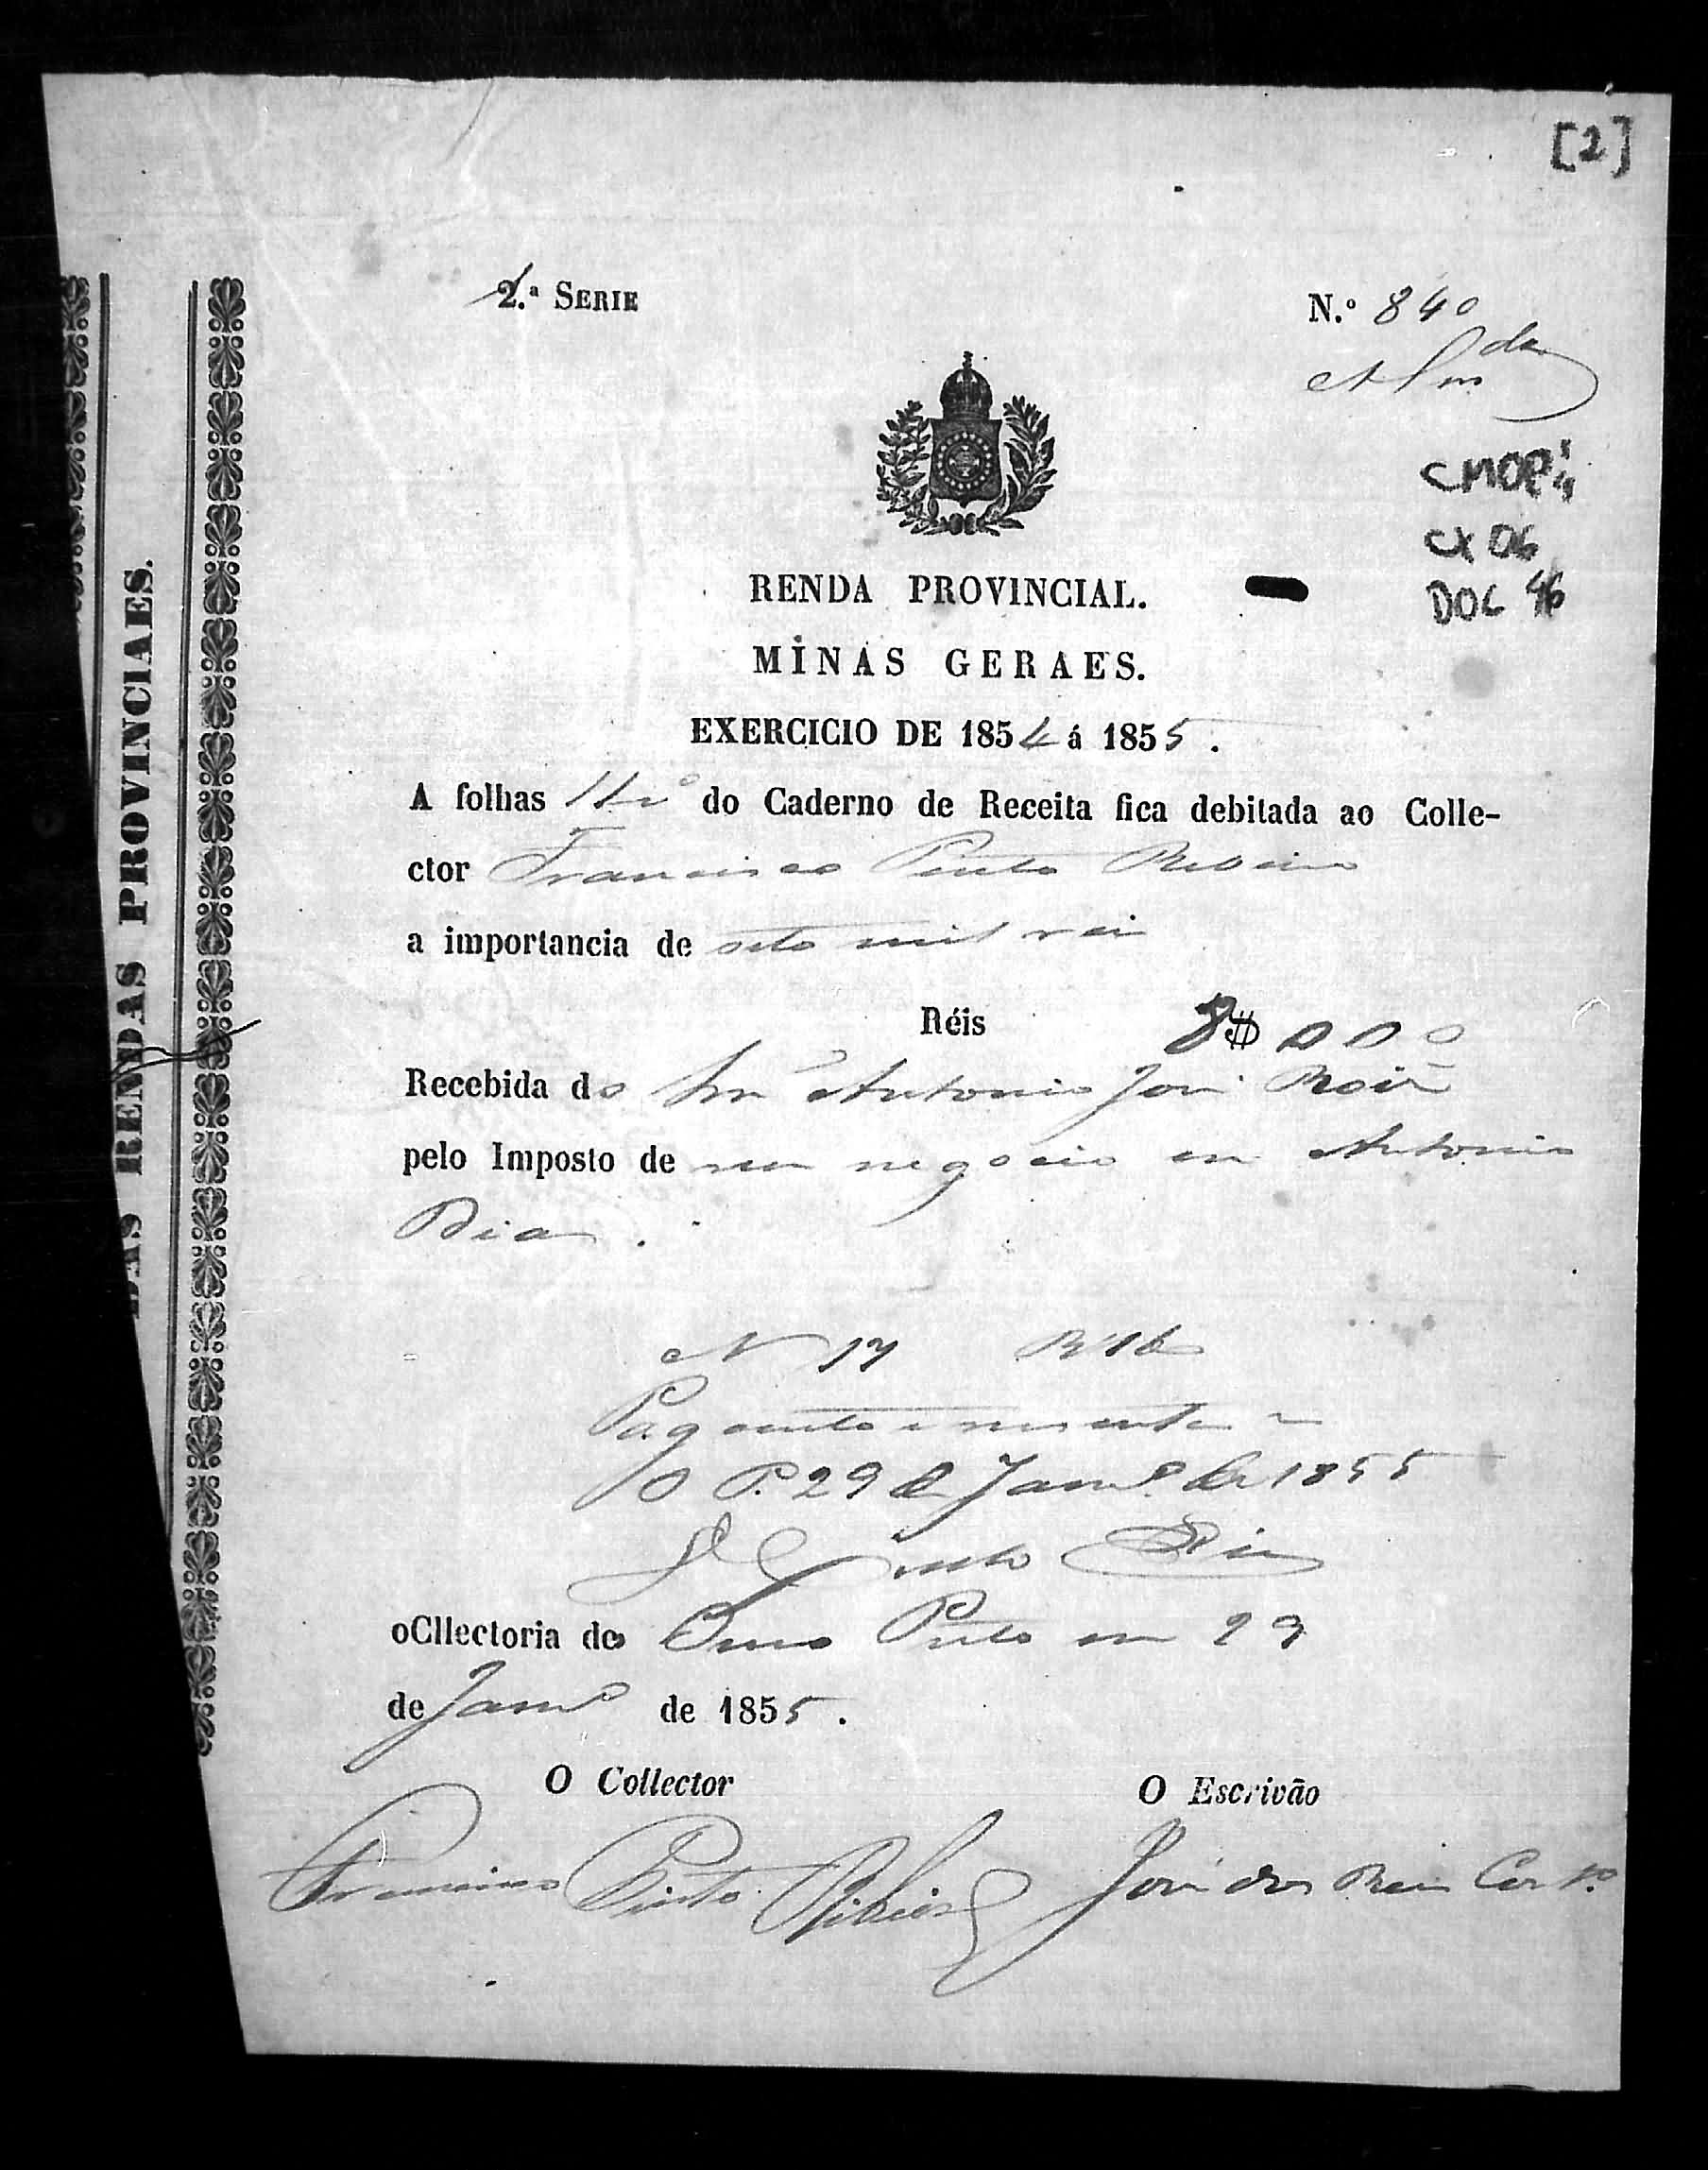 [2]
2.ª SERIE
N.º 840
CMOP
CX 06
DOC 46
RENDA PROVINCIAL.
MINAS GERAES.
EXERCICIO DE 1854 á 1855.
A folhas do Caderno de Receita fica debitada ao Colle-
ctor Francisco Pinto Ribeiro
a importancia de oito mil reis
Réis 8$000
Recebida do Snr Antonio José
pelo Imposto de seu negocio em Antonio
Dias.
N 17
O P. 29 de Janro. de 1855
oCllectoria do Ouro Preto em 29
de Janro de 1855.
O Collector
O Escrivão
Francisco Pinto Ribeiro
José dos Reis
DAS RENDAS PROVINCIAES.